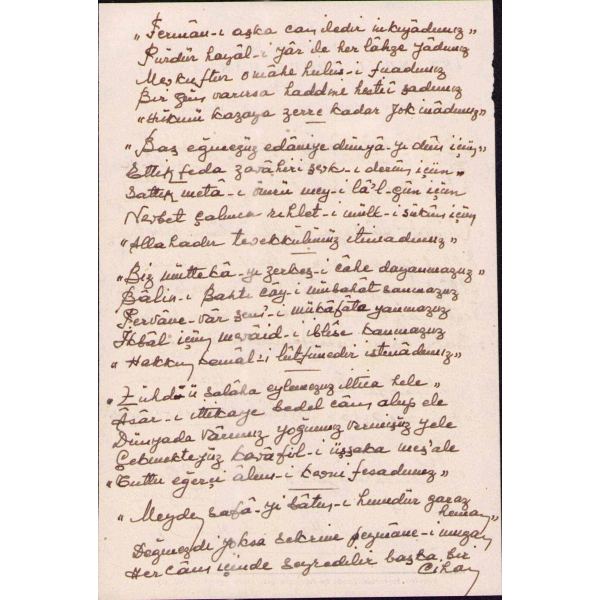 "Fermân-ı aşka can iledir inkıyâdımız"
Pürdür hayâl-i yâr ile her lâhze yâdımız
Meşkuftur o mâhe hulûs-i fuadımız
Bir gün varırsa haddine hestii şadımız
"Hükmü kazaya zerre kadar yok inâdımız"
"Baş eğmezüz edâniye dünyâ-yı dûn içün"
Ettik feda zavâhiri şevk-i derûn içün
Sattık metâ-i ömrü mey-i lâ'l-gûn içün
Nevbet çalınca rıhlet-i mülk-i sükûn içün
"Allahadır tevekkülümüz itimadımız"
"Biz müttekâ-yı zerkeş-i câhe dayanmazuz"
Bâlin-i bahtı cây-i mübahât sanmazuz
Pervâne-vâr şem'-i mükâfâta yanmazuz
İkbâl içün mevâid-i iblîse kanmazuz
"Hakkın kemâl-i lûtfünedir istinâdımız"
"Zühdü salâha eylemezüz iltica hele"
Âsâr-ı ittikaye bedel câm alup ele
Dünyada vârımız yoğumuz vermişüz yele
Çekmekteyüz kavâfil-i uşşaka meş'ale
"Tuttu eğerçi âlem-i kevni fesadımız"
"Meyden safâ-yi bâtın-ı humdur garaz heman"
Değmezdi yoksa sekrine peymâne-i mugan
Her câm içinde seyredilir başka bir cihan